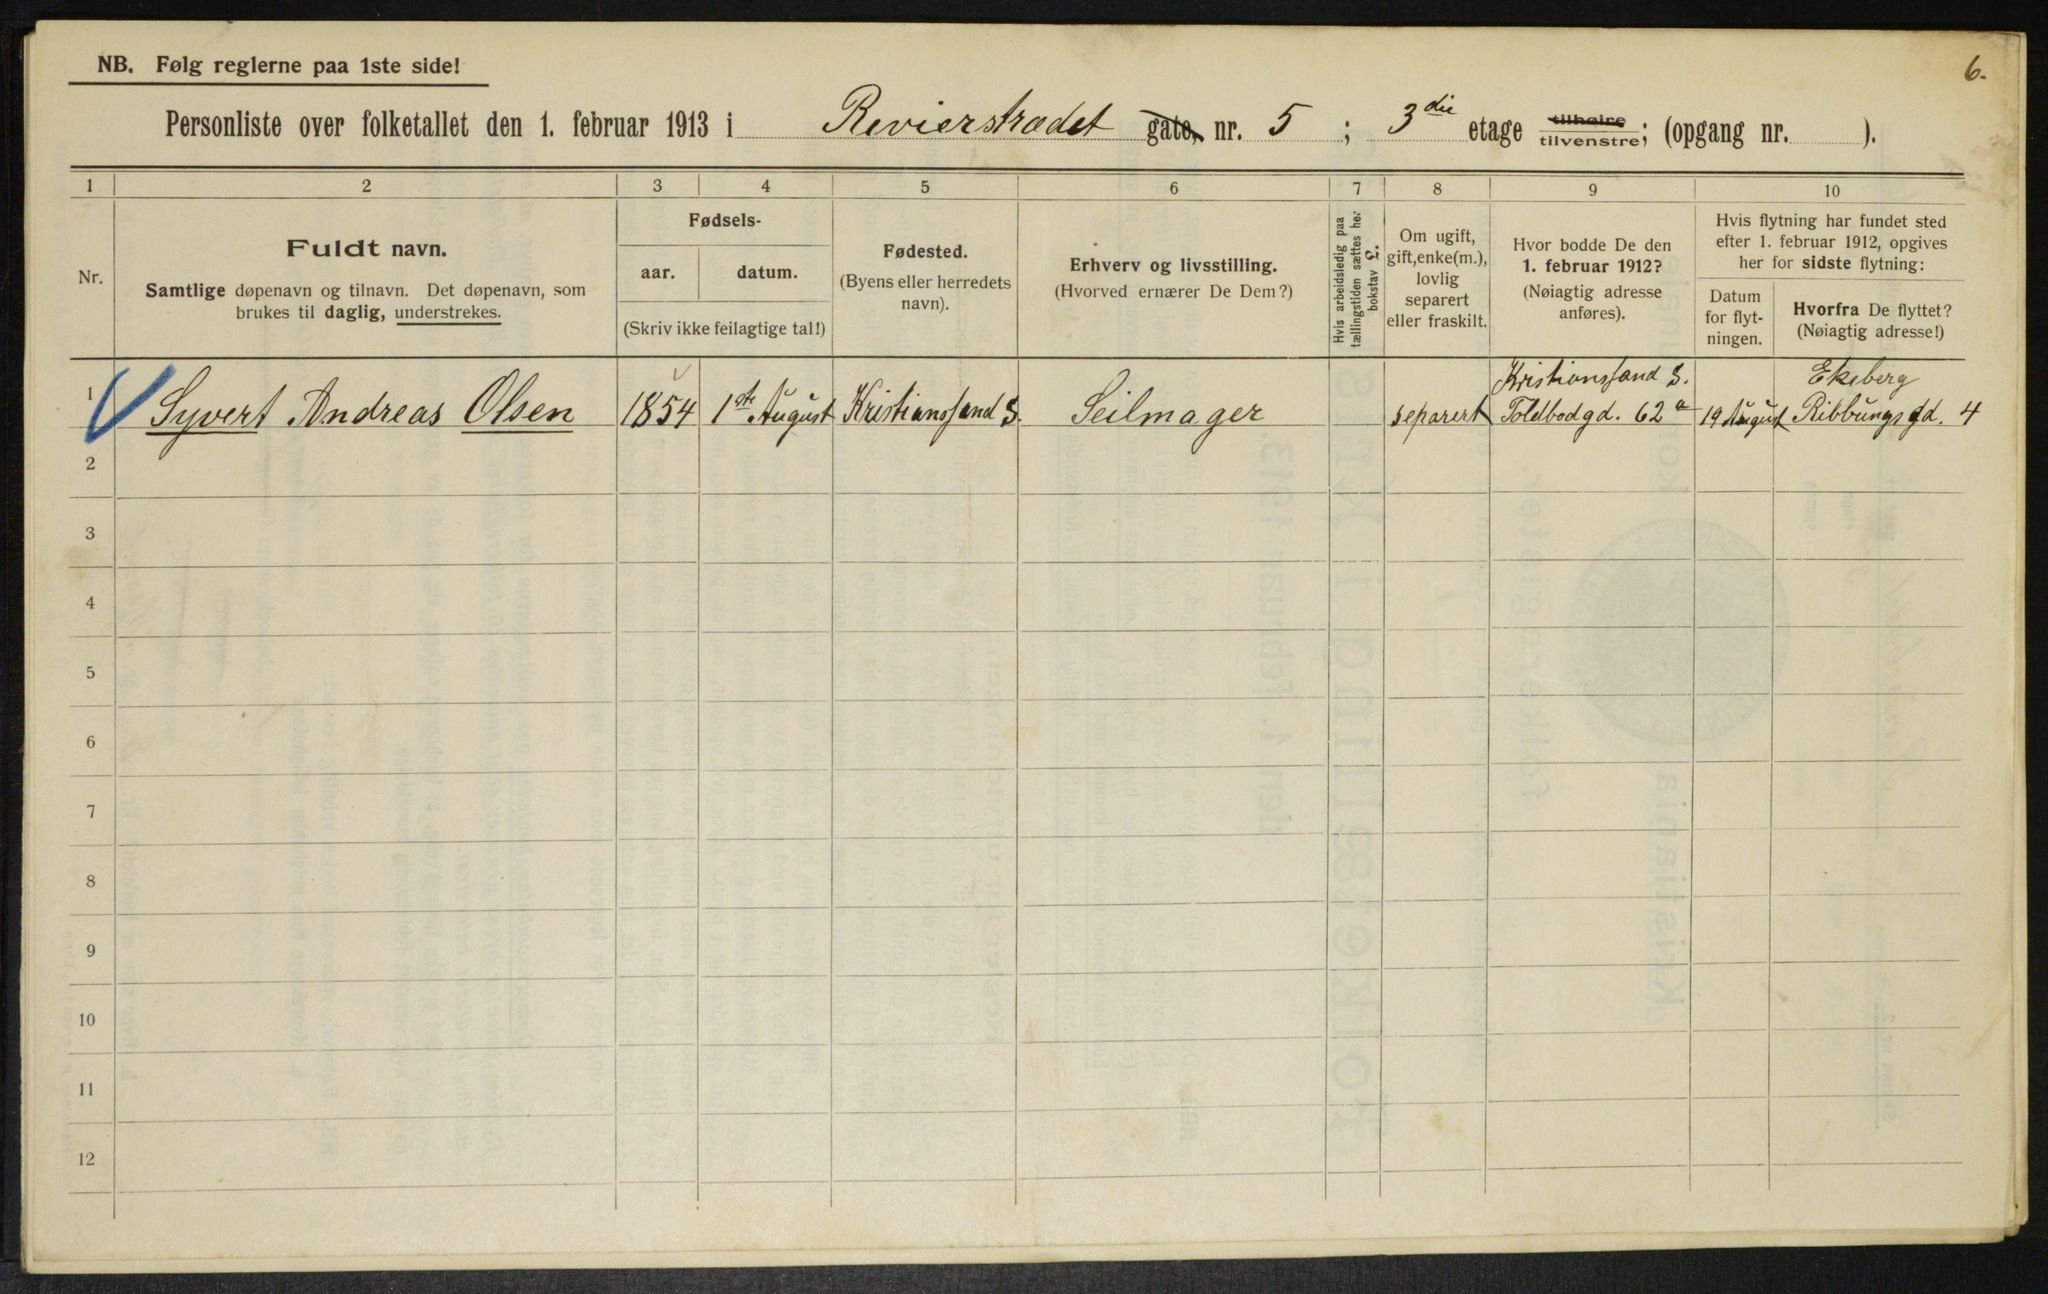 NB. Følg reglerne paa 1ste side!
6.
Personliste over folketallet den 1. februar 1913 i Revierstrædet gate, nr. 5 ; 3die etage tilhøire tilvenstre; (opgang nr. ).
1 2 3 4 5 6 7 8 9 10
Nr.
Fuldt navn.
Samtlige døpenavn og tilnavn. Det døpenavn, som
brukes til daglig, understrekes.
Fødsels-
aar. datum.
(Skriv ikke feilagtige tal!)
Fødested.
(Byens eller herredets
navn).
Erhverv og livsstilling.
(Hvorved ernærer De Dem?)
Hvis arbeidsledig paa
tællingstiden sættes her
bokstav L.
Om ugift,
gift, enke(m.),
lovlig
separert
eller fraskilt.
Hvor bodde De den
1. februar 1912?
(Nøiagtig adresse
anføres).
Hvis flytning har fundet sted
efter 1. februar 1912, opgives
her for sidste flytning:
Datum
for flyt-
ningen.
Hvorfra De flyttet?
(Nøiagtig adresse!)
Kristianssand S. Ekeberg
1 Syvert Andreas Olsen 1854 1ste August Kristianssand S. Seilmager separert Toldbodgd. 62a 19 August Ribbungsgd. 4
2
3
4
5
6
7
8
9
10
11
12